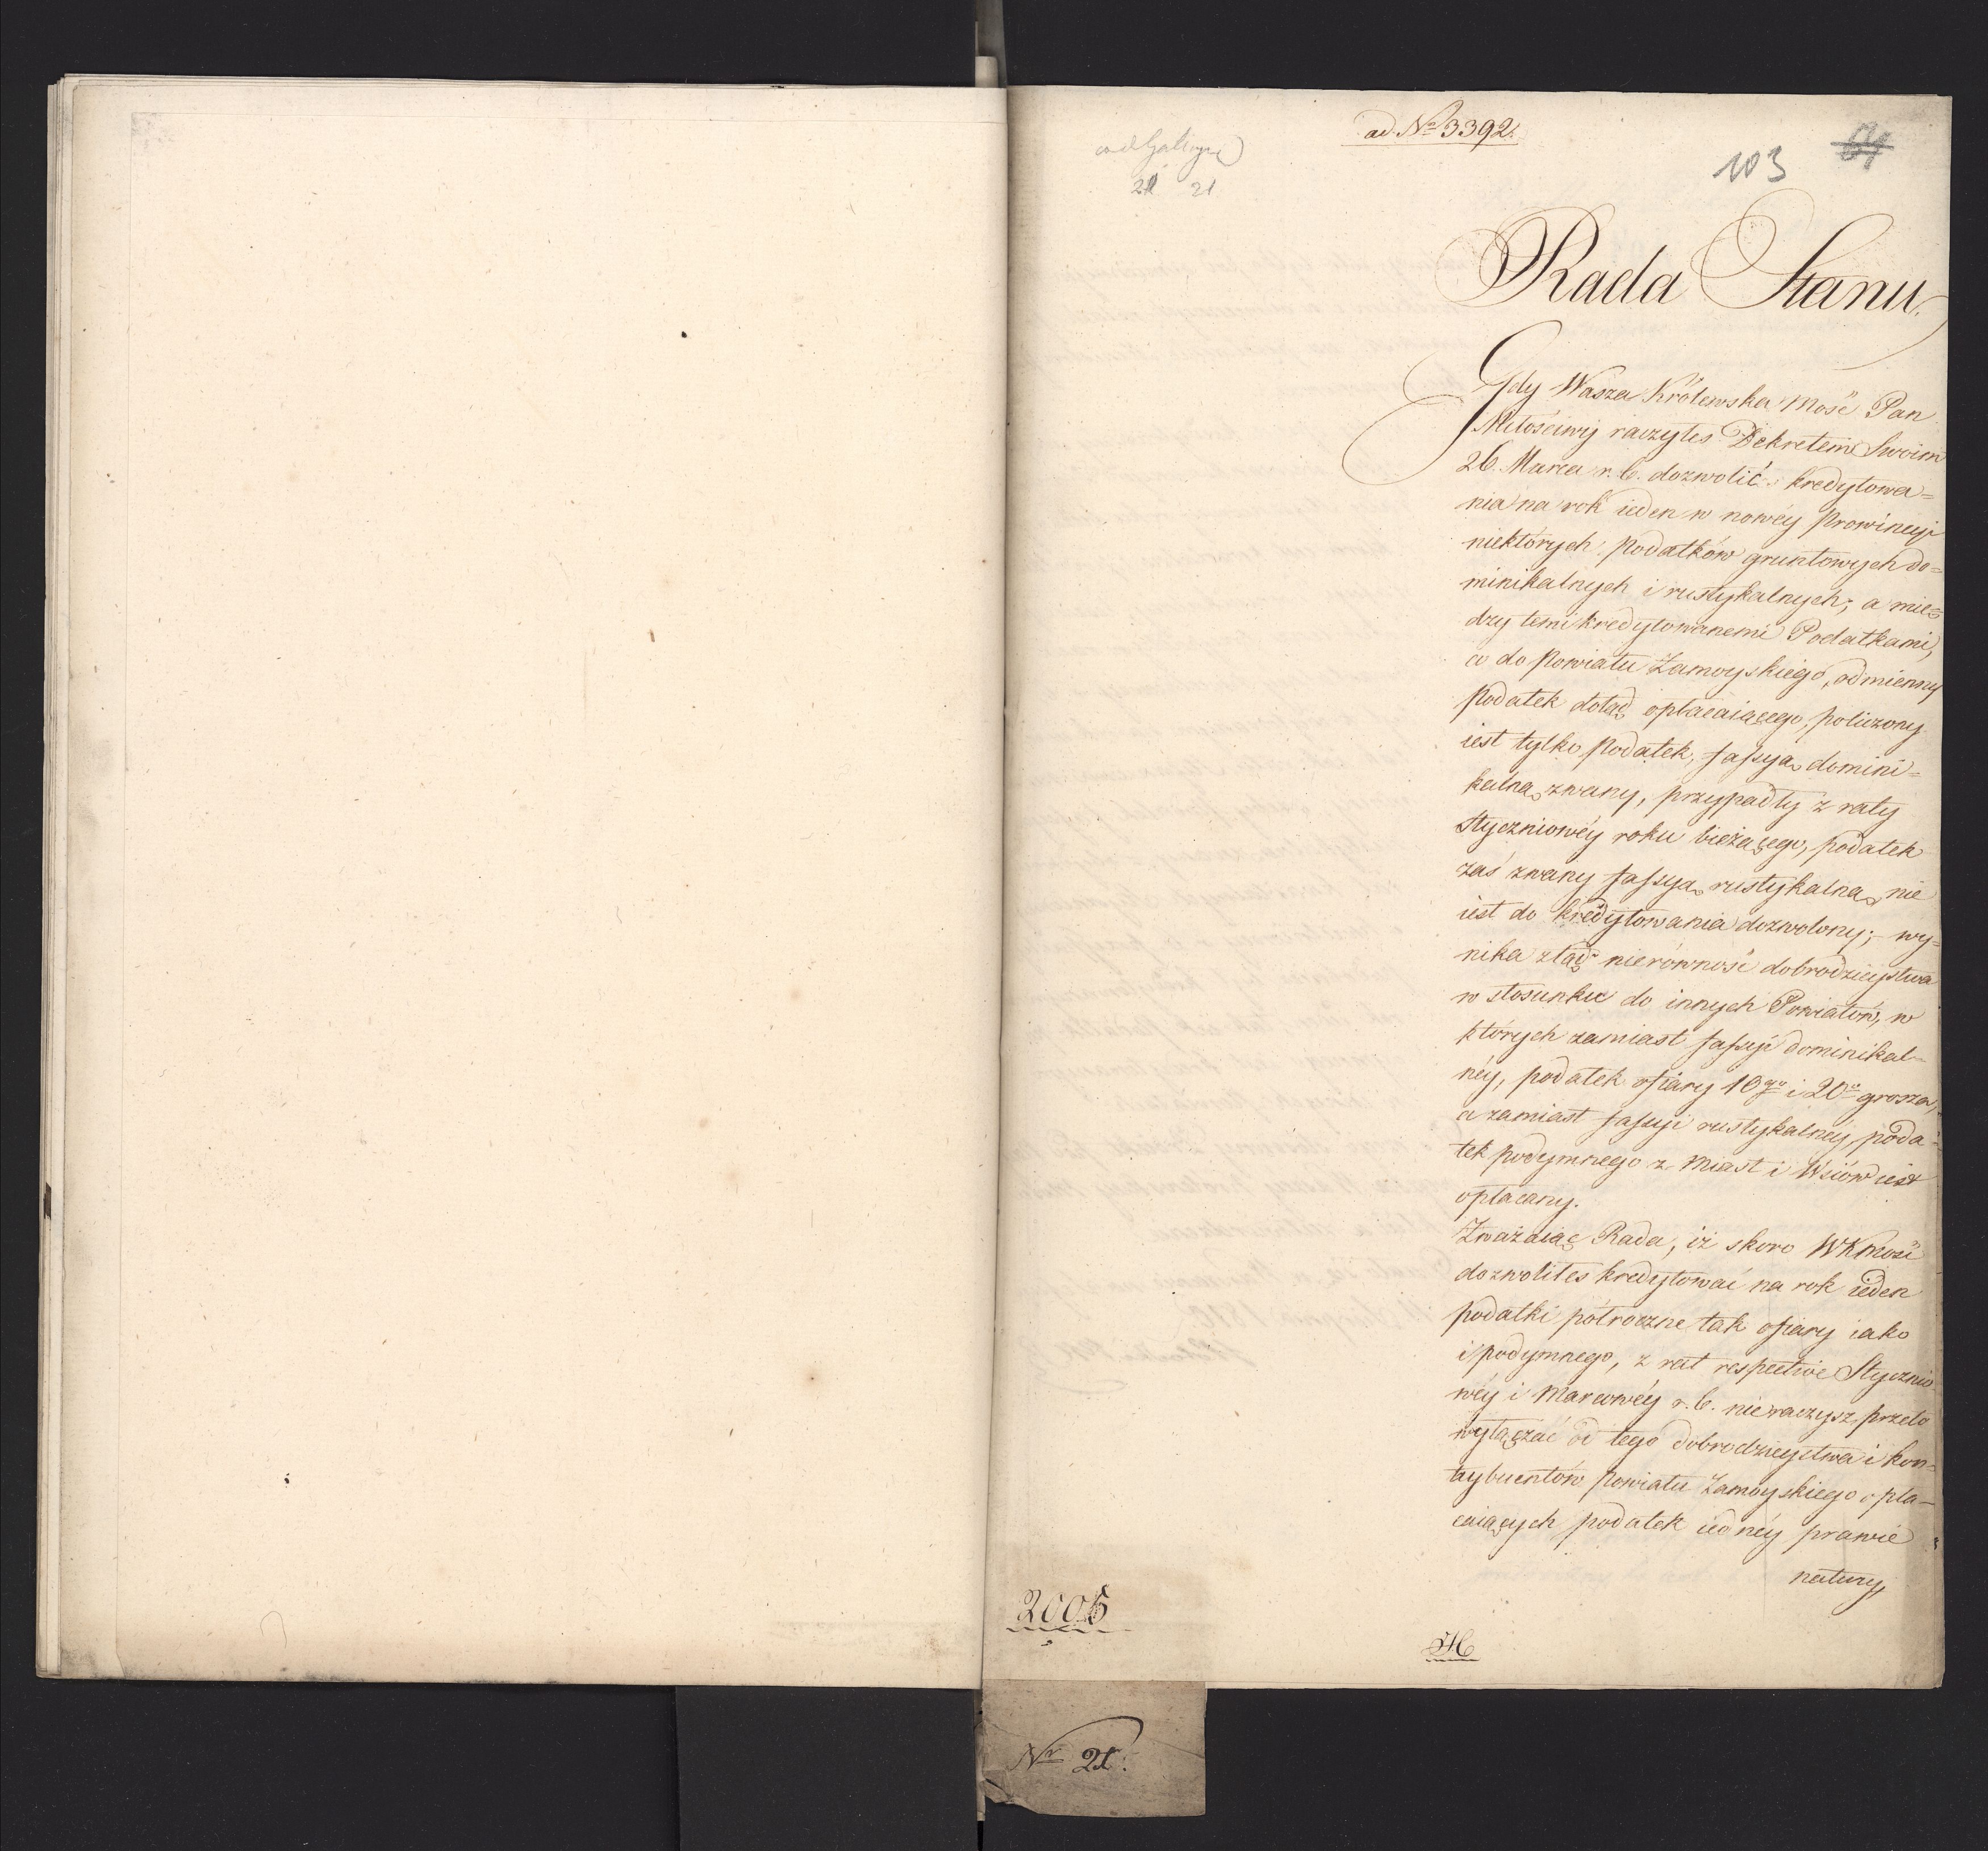 ad No 3392.
21 21
103
Rada Stanu.
Gdy Wasza Królewska Mość Pan
Miłościwy raczyłes Dekretem Swoim
26. Marca r. b. dozwolić kredytowa=
nia na rok ieden w nowéy Prowincyi
niektórych Podatków gruntowych do=
minikalnych i rustykalnych; a mię=
dzy temi kredytowanemi Podatkami,
co do Powiatu Zamoyskiego, odmienny
Podatek dotąd opłacaiącego, policzony
iest tylko Podatek, fassyą domini=
kalną zwany, przypadły z raty
Styczniowéy roku bieżącego, podatek
zaś zwany fassyą rustykalną nie
iest do kredytowania dozwolony; wy=
nika ztąd nierówność dobrodzieystwa
w stosunku do innych Powiatów, w
których zamiast fassyi dominikal=
néy, podatek ofiary 10go i 20o grosza,
a zamiast fassyi rustykalnéy, poda=
tek podymnego z Miast i Wsiów iest
opłacany.
Zważaiąc Rada, iż skoro WKMość
dozwoliłes kredytować na rok ieden
podatki półroczne tak ofiary iako
i podymnego, z rat respective Stycznio
wéy i Marcowéy r. b. nieraczysz przeto
wyłączać od tego dobrodzieystwa i kon=
trybuentów Powiatu Zamoyskiego opła=
caiących podatek iednéy prawie
natury
2005
Nr 21.